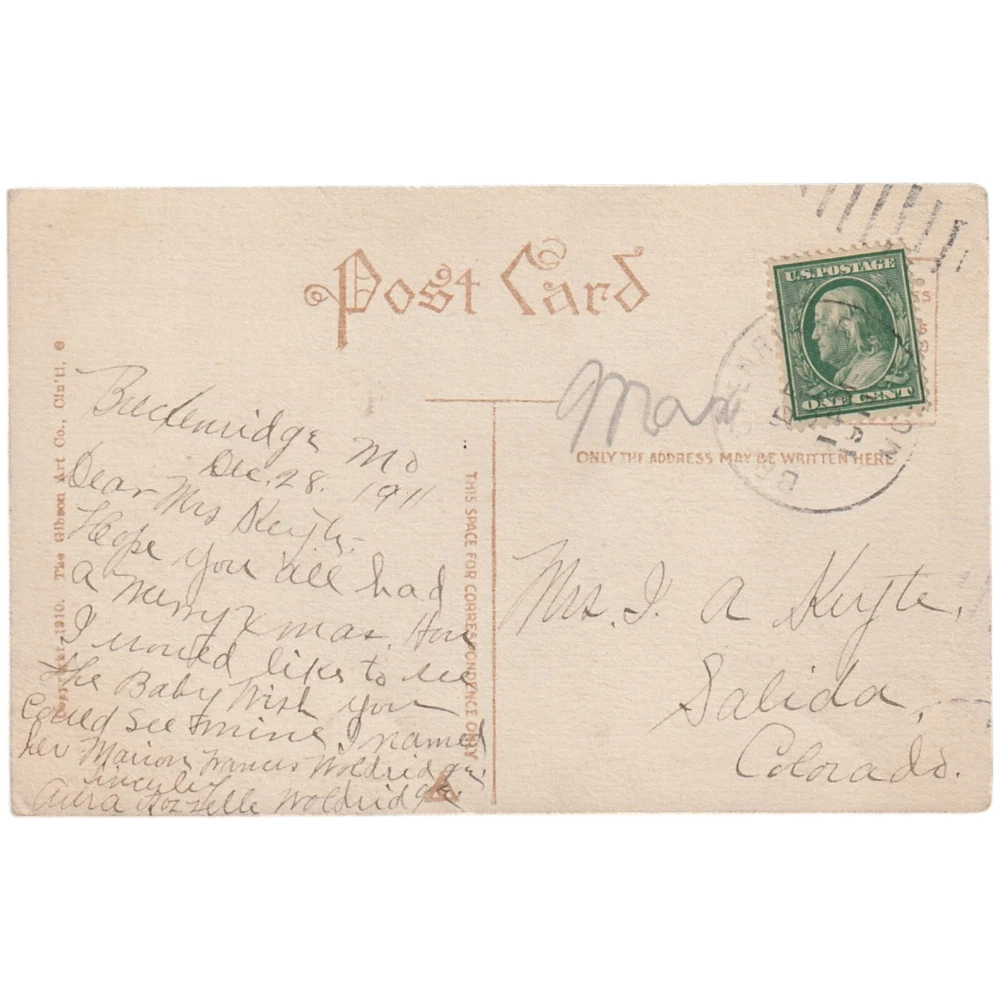 Post Card
U.S. POSTAGE
ONE CENT
Mar
ONLY THE ADDRESS MAY BE WRITTEN HERE
THIS SPACE FOR CORRESPONDENCE ONLY
Copyright 1910. The Gibson Art Co., Cin'ti.
Breckenridge Mo
Dec. 28. 1911
Dear Mrs Keyte-
Hope you all had
a merry Xmas. How
I would like to see
the Baby Wish you
could see mine, I named
her Marion Francis Woldridge,
Sincerely
Aura Rozzelle Woldridge
Mrs. I. A Keyte,
Salida,
Colorado.